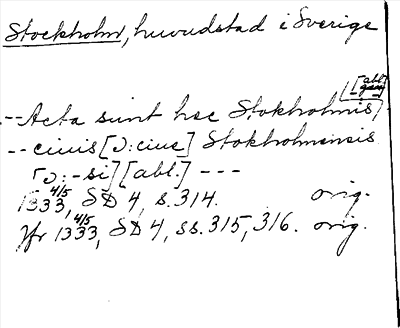 Stockholm, huvudstad i Sverige
[abl.
--Acta sunt hec Stokholmis
--ciuis [ɔ: ciue] Stokholmensis
[ɔ: -si] [abl.] ---
1333 4/5, SD 4, s. 314. orig.
Jfr 1333 4/5, SD 4, ss. 315, 316. orig.